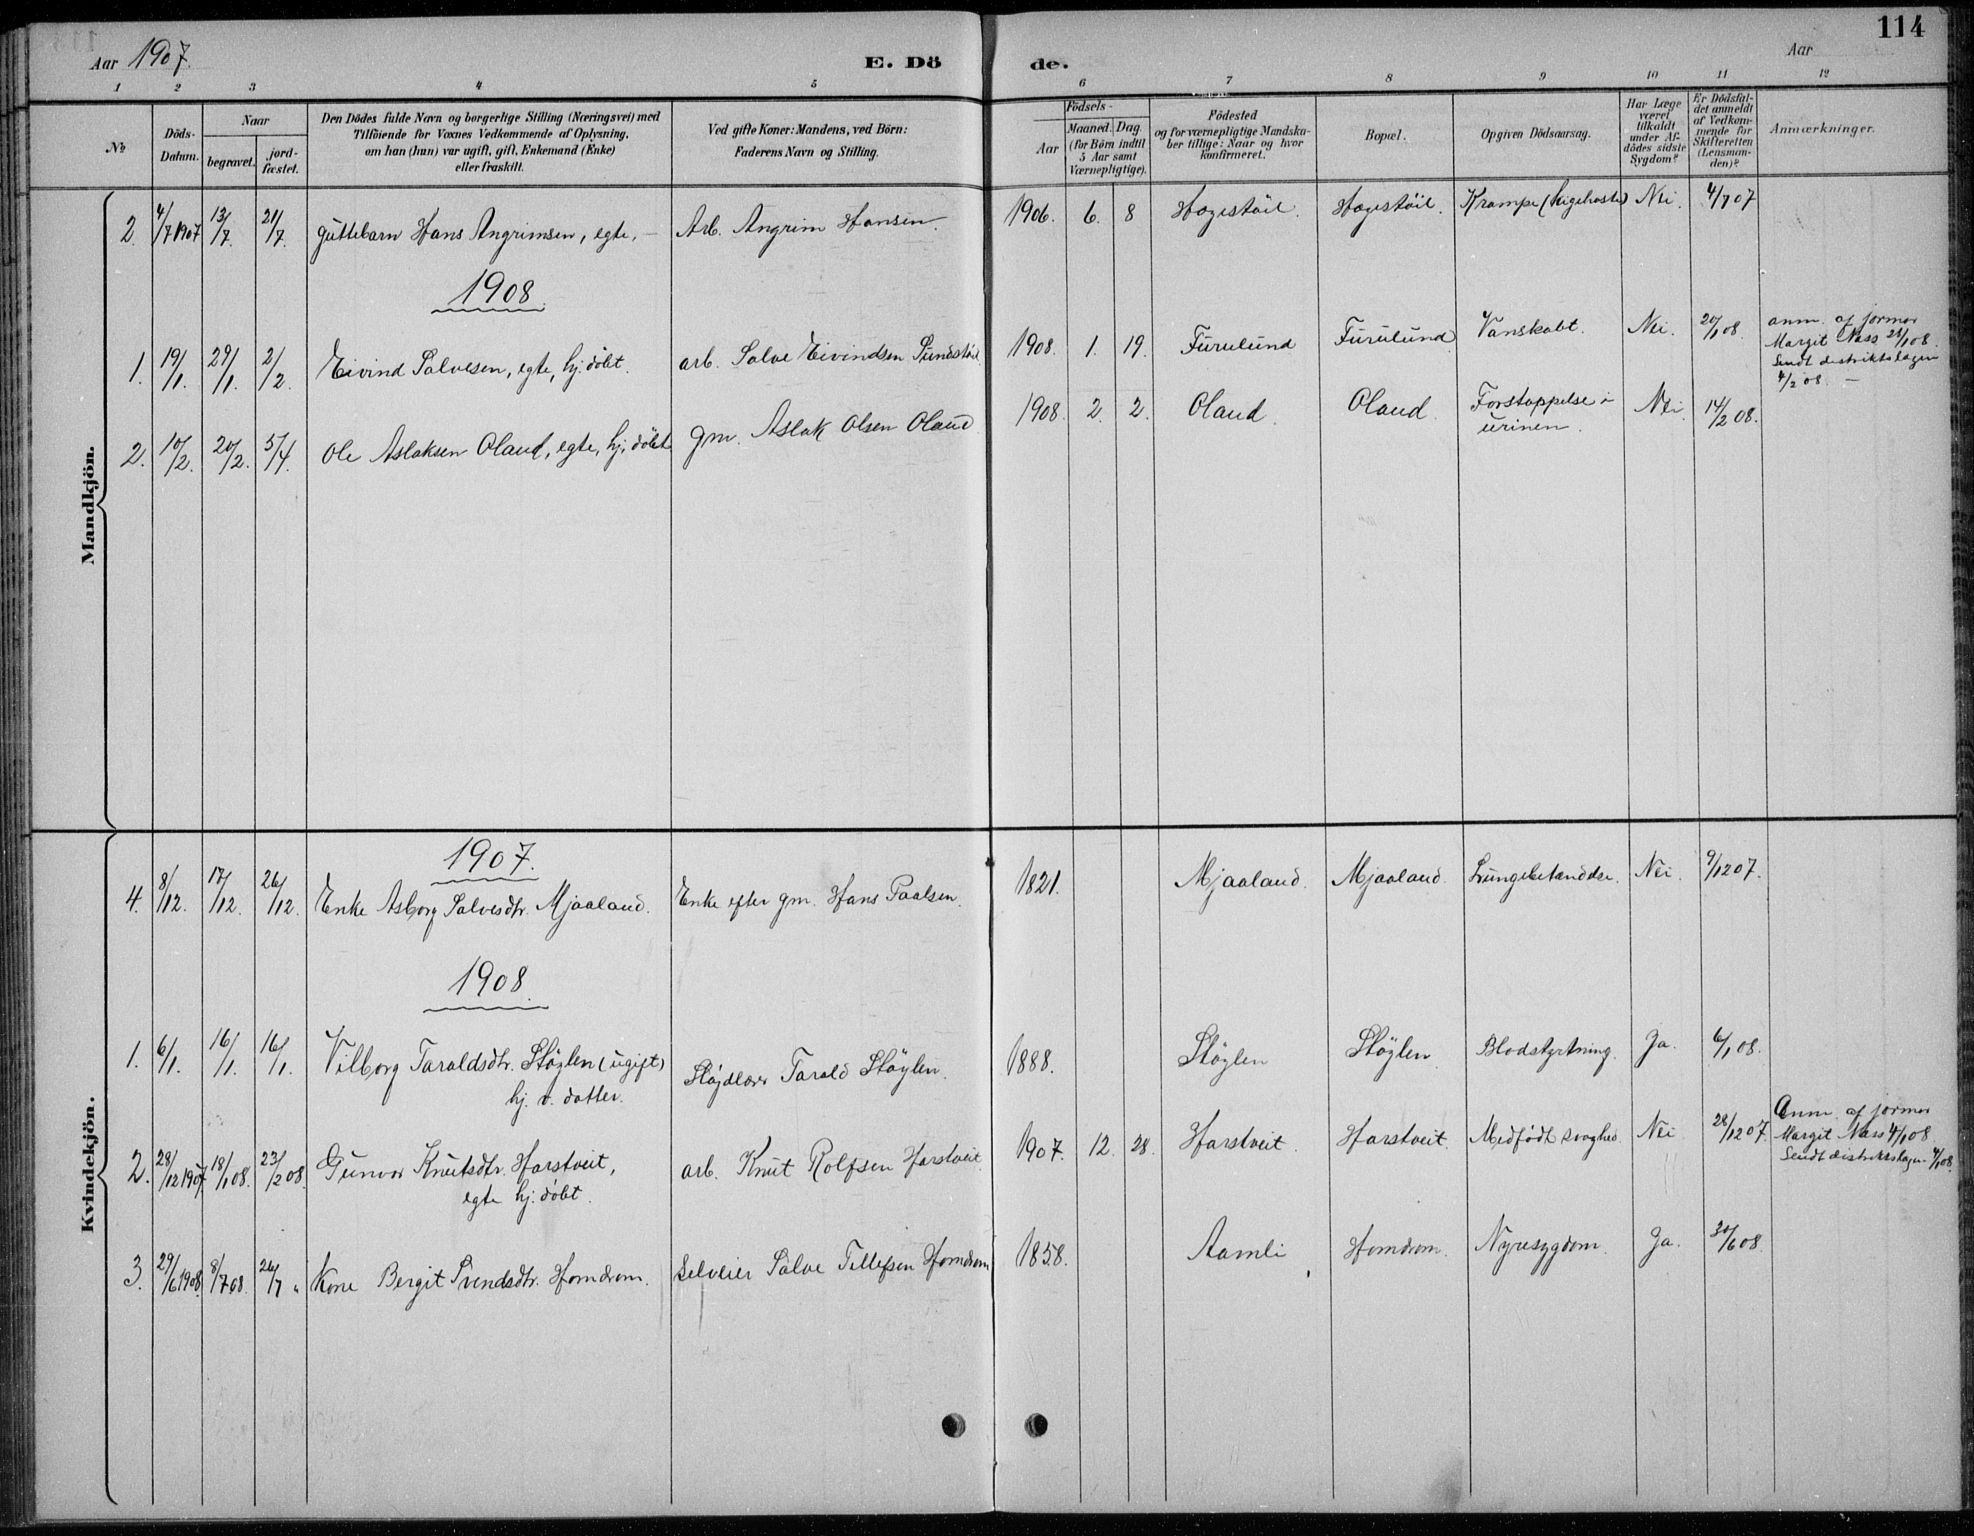 114
Aar 1907.
E. Dö
de.
Aar
1 2 3 4 5 6 7 8 9 10 11 12
No
Döds-
Datum.
Naar
begravet.
jord-
fæstet.
Den Dödes fulde Navn og borgerlige Stilling (Næringsvei) med
Tilföiende for Voxnes Vedkommende af Oplysning,
om han (hun) var ugift, gift, Enkemand (Enke)
eller fraskilt.
Ved gifte Koner: Mandens, ved Börn:
Faderens Navn og Stilling.
Födsels-
Aar
Maaned. Dag
(for Börn indtil
5 Aar samt
Værnepligtige).
Födested
og for værnepligtige Mandska-
ber tillige: Naar og hvor
konfirmeret.
Bopæl.
Opgiven Dödsaarsag.
Har Læge
været
tilkaldt
under Af-
dödes sidste
Sygdom?
Er Dödsfal-
det anmeldt
af Vedkom-
mende for
Skifteretten
(Lensman-
den)?
Anmærkninger.
Mandkjön.
2. 4/7 1907 13/7. 21/7. Guttebarn Hans Angrimsen, egte, — Arb. Angrim Hansen. 1906. 6. 8 Hægestöil. Hægestöil. Krampe (kighoste) Nei. 4/7 07
1908.
1. 19/1. 29/1. 2/2. Eivind Salvesen, egte, hj. döbt. arb. Salve Eivindsen 1908. 1. 19. Furulund Furulund Vanskabt. Nei. 20/1 08
anm. af jormor
Margit Næss 21/1 08.
Sendt distriktslægen
4/2 08. —
2. 10/2. 20/2. 5/4. Ole Aslaksen Oland, egte, hj. döbt gm. Aslak Olsen Oland 1908. 2. 2. Oland. Oland. Forstoppelse i
urinen. Nei 14/2 08.
Kvindekjön.
1907.
4. 8/12. 17/12. 26/12. Enke Asborg Salvesdtr. Mjaaland. Enke efter gm. Hans Paalsen. 1821. Mjaaland. Mjaaland. Lungebetændelse. Nei. 9/12 07.
1908.
1. 6/1. 16/1. 16/1. Vilborg Taraldsdtr. Stöylen (ugift)
hj. v. datter. Slöjdlærer Tarald Stöylen. 1888. Stöylen Stöylen Blodstyrtning. Ja. 6/1 08.
2. 28/12 1907 18/1 08. 23/2 08. Gunvor Knutsdtr. Harstveit,
egte hj. döbt. arb. Knut Rolfsen Harstveit 1907. 12. 28. Harstveit. Harstveit. Medfödt svaghed. Nei 28/12 07.
Anm. af jormor
Margit Næss 4/1 08
Sendt distriktslægen 4/1 08.
3. 29/6 1908. 8/7 08. 26/7 " Kone Bergit Svendsdtr. Homdrom. Selveier Salve Tellefsen Homdrom 1858. Aamli Homdrom. Nyresygdom. Ja. 30/6 08.